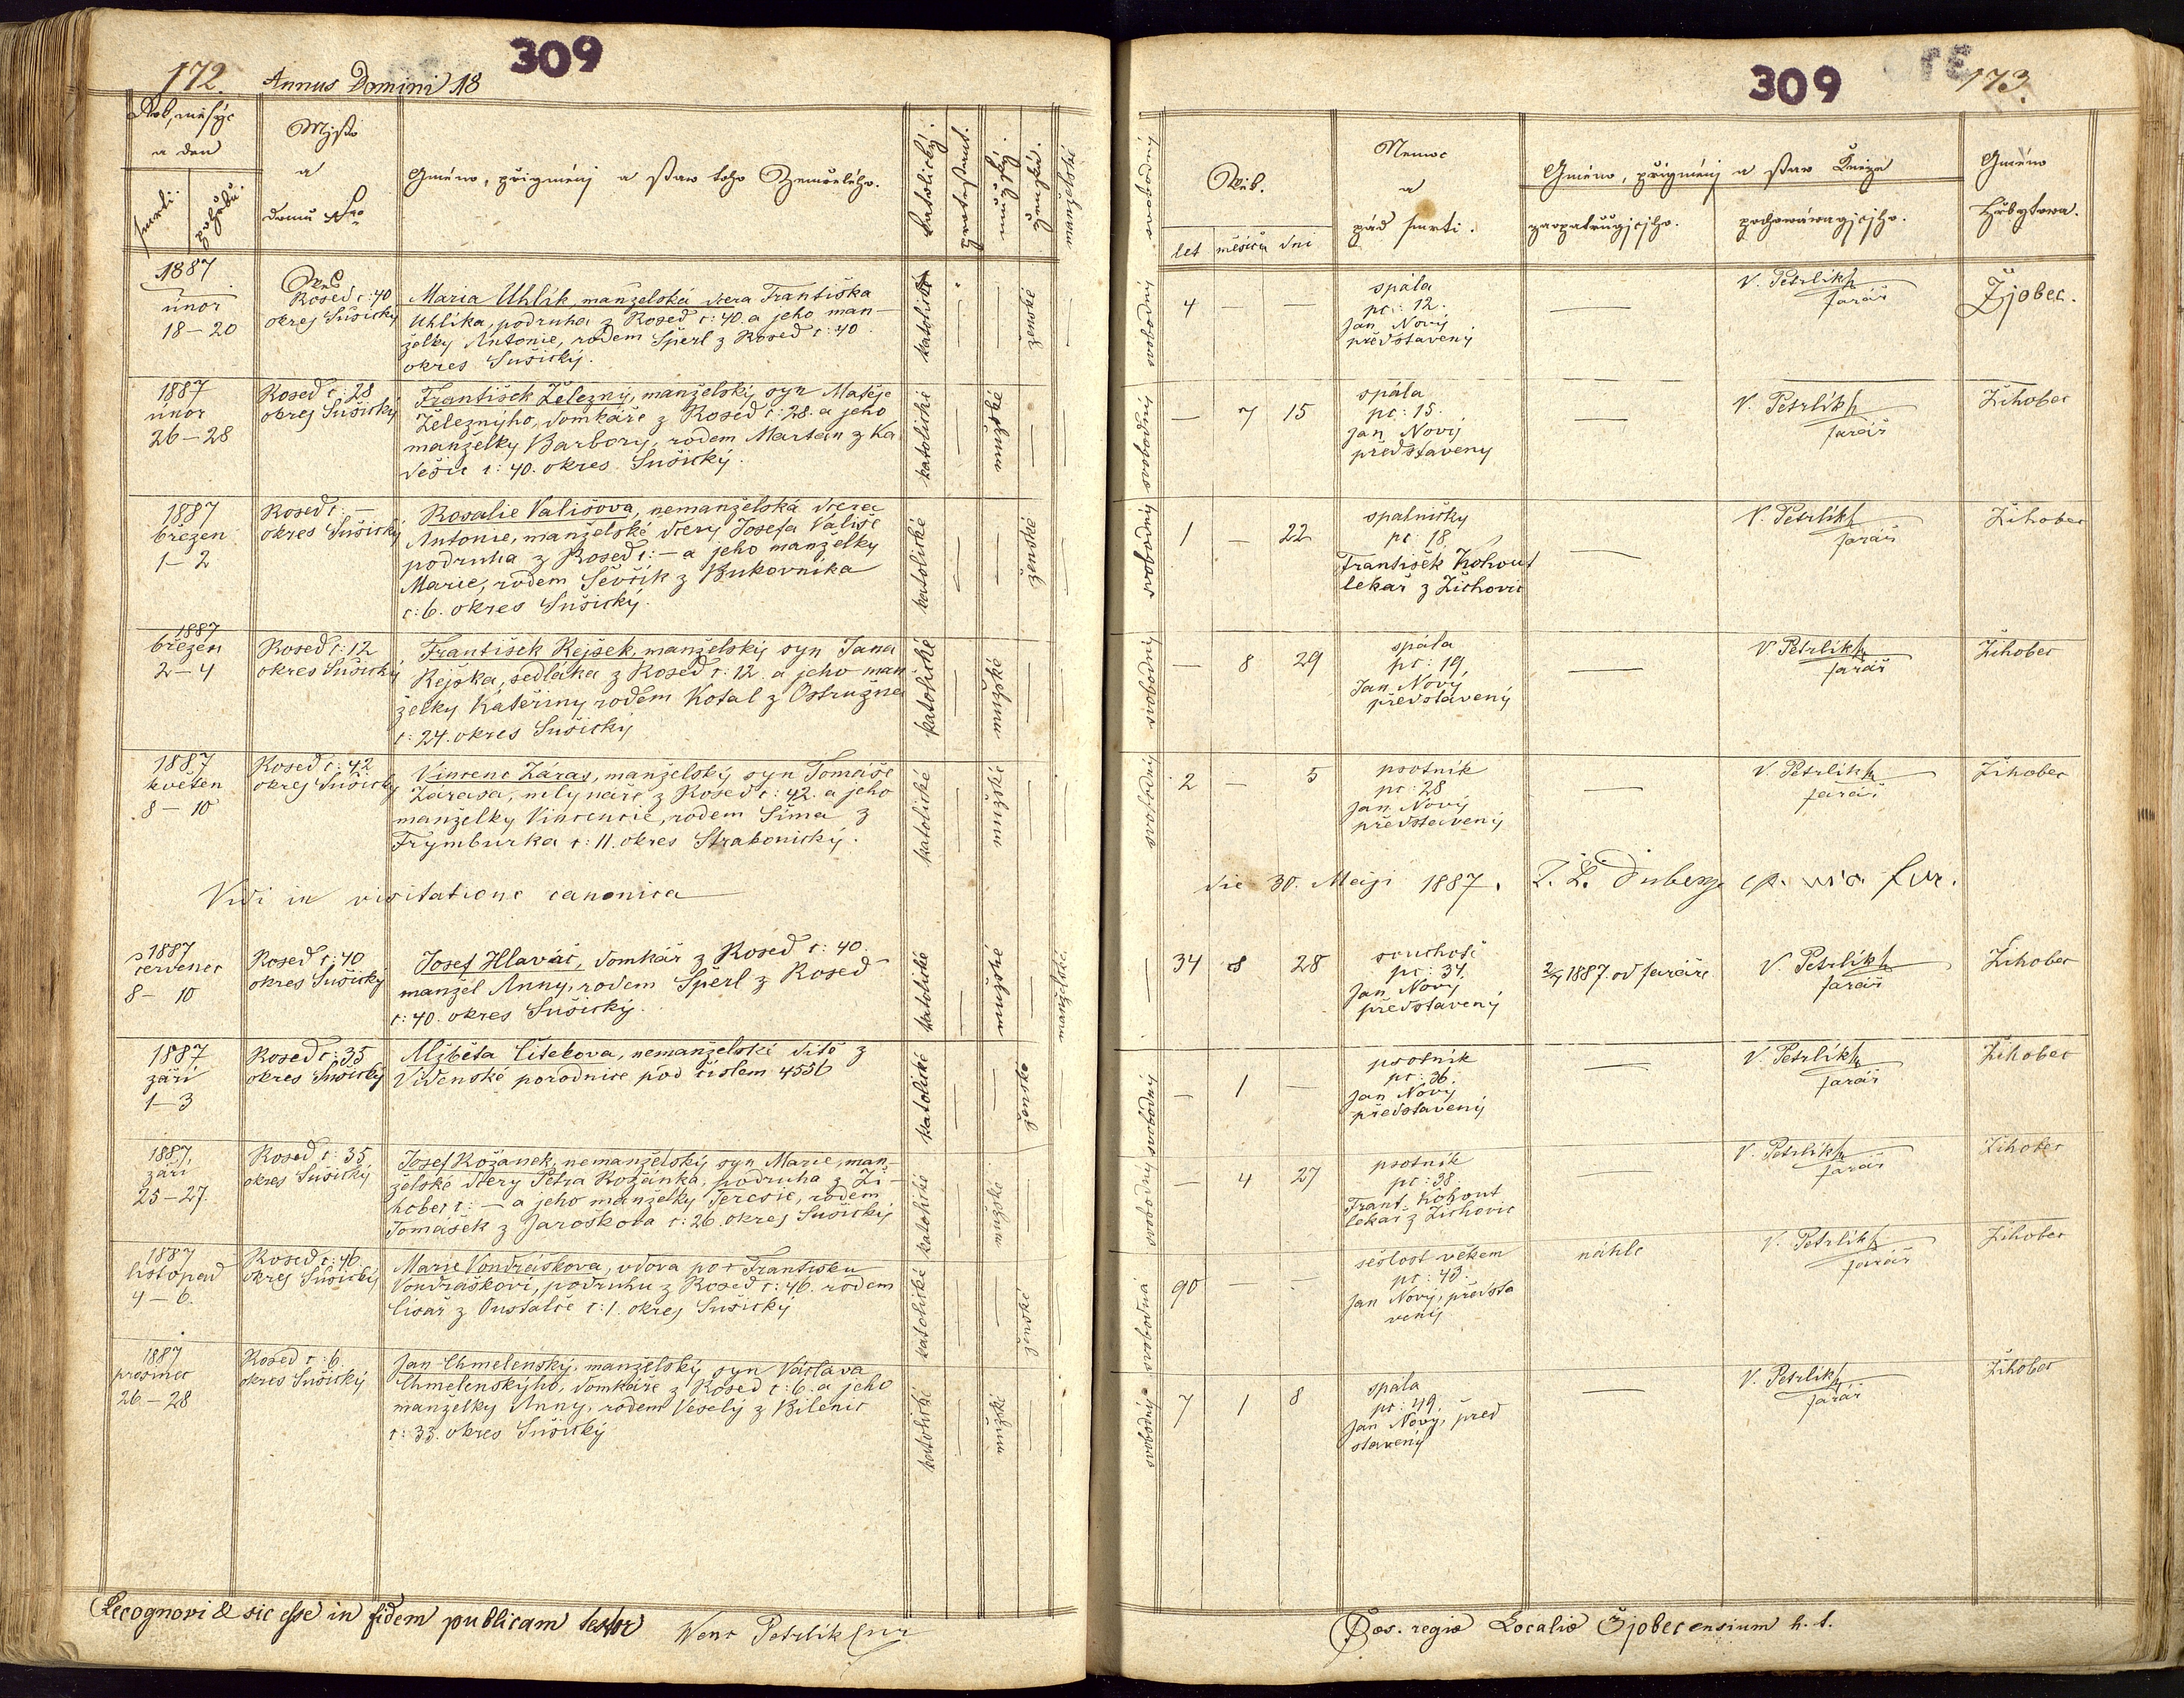 309
172. Annus Domini 18
Rok, měsýc
a den
smrti.
pohřbu.
Mjsto
a
domu Nro
Gméno, přigmenj a staw toho Zemřelého.
katolický.
protestant.
mužský.
ženský.
manželské
1887
únor
18–20
Rosed č: 40
okres Sušický
Maria Uhlík, manželská dcera Františka
Uhlíka, podruha z Rosed č: 40. a jeho man-
želky Antonie, rodem Šperl z Rosed č: 40.
okres Sušický.
katolické
ženské
1887
únor
26–28
Rosed č: 28
okres Sušický
František Železný, manželský syn Matěje
Železnýho, domkáře z Rosed č: 28. a jeho
manželky Barbory, rodem Martan z Ka
dešic č: 40. okres Sušický.
katolické
mužské
1887
březen
1–2
Rosed č: –
okres Sušický
Rosalie Vališova, nemanželská dcera
Antonie, manželské dcery Josefa Vališe
podruha z Rosed č: – a jeho manželky
Marie, rodem Ševčík z Bukovníka
č: 6. okres Sušický.
katolické
ženské
1887
březen
2–4
Rosed č: 12
okres Sušický
František Rejšek, manželský syn Jana
Rejška, sedláka z Rosed č: 12. a jeho man
želky Kateřiny rodem Kotal z Ostružna
č: 24. okres Sušický
katolické
mužské
1887
květen
8–10
Rosed č: 42
okres Sušický
Vincenc Záras, manželský syn Tomáše
Zárasa, mlynáře z Rosed č: 42. a jeho
manželky Vincencie, rodem Šima z
Frymburka č: 11. okres Strakonický.
katolické
mužské
Vidi in visitatione canonica
1887
červenec
8–10
Rosed č: 40
okres Sušický
Josef Hlaváč, domkář z Rosed č: 40.
manžel Anny, rodem Šperl z Rosed
č: 40. okres Sušický.
katolické
mužské
manželské
1887
září
1–3
Rosed č: 35
okres Sušický
Alžběta Čítekova, nemanželské dítě z
Vídenské porodnice pod číslem 4556
katolické
ženské
1887
září
25–27.
Rosed č: 35
okres Sušický
Josef Rožanek, nemanželský syn Marie, man
želské dcery Petra Rožánka, podruha z Ži-
hobec č: – a jeho manželky Teresie, rodem
Tomášek z Jaroškova č: 26. okres Sušický
katolické
mužské
1887
listopad
4–6.
Rosed č: 46.
okres Sušický
Marie Vondrášková, vdova po + Františku
Vondráškovi, podruhu z Rosed č: 46. rodem
Císař z Oustalče č: 1. okres Sušický
katolické
ženské
1887
prosinec
26–28
Rosed č: 6.
okres Sušický
Jan Chmelenský, manželský syn Václava
Chmelenskýho, domkáře z Rosed č: 6. a jeho
manželky Anny, rodem Veselý z Bilenic
č: 33. okres Sušický
katolické
mužské
Recognovi & sic esse in fidem publicam testor Wenc Petrlik
309
173.
svobodný
Věk.
let měsíců dni
Nemoc
a
pád smrti.
Gméno, přigmenj a staw Kněze
zaopatřugjcjho.
pochowáwagjcjho.
Gméno
Hřbytowa.
svobodný
4 — —
spála
pč: 12.
Jan Nový
představený
—
V. Petrlík
farář
Žjobec.
svobodný
— 7 15
spála
pč: 15.
Jan Nový
představený
—
V. Petrlík
farář
Žihobec
svobodný
1 – 22
spalničky
pč: 18.
František Kohout
lekař z Žichovic
—
V. Petrlík
farář
Žihobec
svobodný
— 8 29
spála
pč: 19.
Jan Nový
představený
—
V. Petrlík
farář
Žihobec
svobodný
2 – 5
psotník
pč: 28
Jan Nový
představený
—
V. Petrlík
farář
Žihobec
die 30. Maji 1887.
34 8 28
souchotě
pč: 34.
Jan Nový
představený
2/7 1887. od faráře
V. Petrlík
farář
Žihobec
svobodný
— 1 —
psotník
pč: 36.
Jan Nový
představený
—
V. Petrlík
farář
Žihobec
svobodný
— 4 27
psotník
pč: 38.
Frant. Kohout
lekař z Žichovic
—
V. Petrlík
farář
Žihobec
svobodná
90 — –
sešlost věkem
pč: 43.
Jan Nový, předsta
vený
náhle
V. Petrlík
farář
Žihobec
svobodný
7 1 8
spála
pč: 49.
Jan Nový, před
stavený
—
V. Petrlík
farář
Žihobec
Caes. regiae Localiae Žjobecensium h. t.